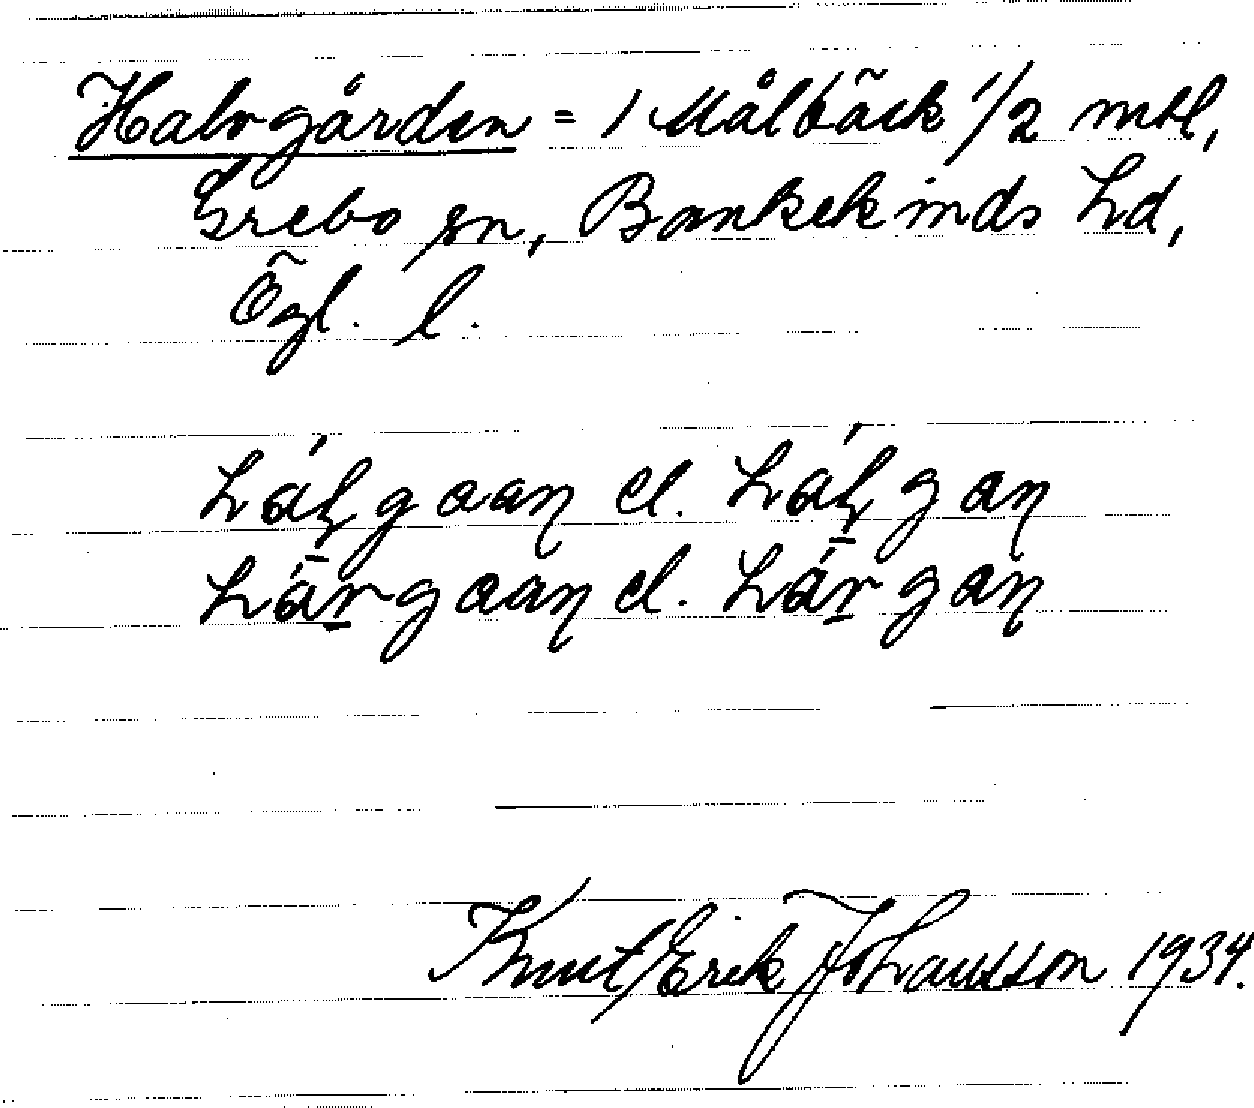 Halvgården = 1 Målbäck 1/2 mtl,
Grebo sn, Bankekinds hd,
Ögl. l.
el.
el.
Knut Erik Johansson 1934.